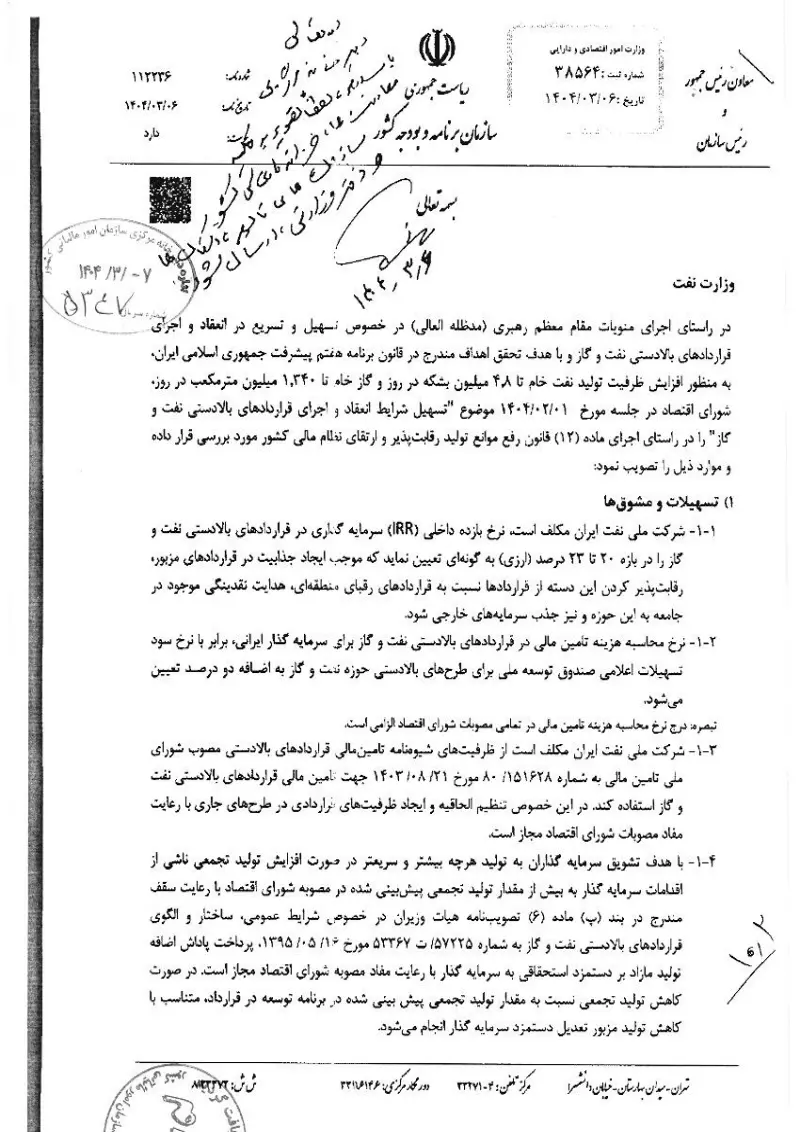 معاون رئیس جمهور
و
رئیس سازمان
وزارت امور اقتصادی و دارایی
شماره ثبت: ۳۸۵۶۴
تاریخ: ۱۴۰۴/۰۳/۰۶
ریاست جمهوری
سازمان برنامه و بودجه کشور
شماره: ۱۱۲۲۳۶
تاریخ: ۱۴۰۴/۰۳/۰۶
دارد
بسمه تعالی
۱۴۰۴/۳/۷
۵۳۴۷
وزارت نفت
در راستای اجرای منویات مقام معظم رهبری (مدظله العالی) در خصوص تسهیل و تسریع در انعقاد و اجرای
قراردادهای بالادستی نفت و گاز و با هدف تحقق اهداف مندرج در قانون برنامه هفتم پیشرفت جمهوری اسلامی ایران،
به منظور افزایش ظرفیت تولید نفت خام تا ۴٫۸ میلیون بشکه در روز و گاز خام تا ۱٬۳۴۰ میلیون مترمکعب در روز،
شورای اقتصاد در جلسه مورخ ۱۴۰۴/۰۲/۰۱ موضوع "تسهیل شرایط انعقاد و اجرای قراردادهای بالادستی نفت و
گاز" را در راستای اجرای ماده (۱۲) قانون رفع موانع تولید رقابت‌پذیر و ارتقای نظام مالی کشور مورد بررسی قرار داده
و موارد ذیل را تصویب نمود:
۱) تسهیلات و مشوق‌ها
۱-۱- شرکت ملی نفت ایران مکلف است، نرخ بازده داخلی (IRR) سرمایه گذاری در قراردادهای بالادستی نفت و
گاز را در بازه ۲۰ تا ۲۳ درصد (ارزی) به گونه‌ای تعیین نماید که موجب ایجاد جذابیت در قراردادهای مزبور،
رقابت‌پذیر کردن این دسته از قراردادها نسبت به قراردادهای رقبای منطقه‌ای، هدایت نقدینگی موجود در
جامعه به این حوزه و نیز جذب سرمایه‌های خارجی شود.
۱-۲- نرخ محاسبه هزینه تامین مالی در قراردادهای بالادستی نفت و گاز برای سرمایه گذار ایرانی، برابر با نرخ سود
تسهیلات اعلامی صندوق توسعه ملی برای طرح‌های بالادستی حوزه نفت و گاز به اضافه دو درصد تعیین
می‌شود.
تبصره: درج نرخ محاسبه هزینه تامین مالی در تمامی مصوبات شورای اقتصاد الزامی است.
۱-۳- شرکت ملی نفت ایران مکلف است از ظرفیت‌های شیوه‌نامه تامین‌مالی قراردادهای بالادستی مصوب شورای
ملی تامین مالی به شماره ۸۰/۱۵۱۶۲۸ مورخ ۱۴۰۳/۰۸/۲۱ جهت تامین مالی قراردادهای بالادستی نفت
و گاز استفاده کند. در این خصوص تنظیم الحاقیه و ایجاد ظرفیت‌های قراردادی در طرح‌های جاری با رعایت
مفاد مصوبات شورای اقتصاد مجاز است.
۱-۴- با هدف تشویق سرمایه گذاران به تولید هرچه بیشتر و سریعتر در صورت افزایش تولید تجمعی ناشی از
اقدامات سرمایه گذار به بیش از مقدار تولید تجمعی پیش‌بینی شده در مصوبه شورای اقتصاد با رعایت سقف
مندرج در بند (پ) ماده (۶) تصویب‌نامه هیات وزیران در خصوص شرایط عمومی، ساختار و الگوی
قراردادهای بالادستی نفت و گاز به شماره ۵۷۲۲۵/ت ۵۳۳۶۷ مورخ ۱۳۹۵/۰۵/۱۶، پرداخت پاداش اضافه
تولید مازاد بر دستمزد استحقاقی به سرمایه گذار با رعایت مفاد مصوبه شورای اقتصاد مجاز است. در صورت
کاهش تولید تجمعی نسبت به مقدار تولید تجمعی پیش بینی شده در برنامه توسعه در قرارداد، متناسب با
کاهش تولید مزبور تعدیل دستمزد سرمایه گذار انجام می‌شود.
تهران-میدان بهارستان-خیابان دانشسرا
مرکز تلفن: ۴-۳۳۲۷۱
دورنگار مرکزی: